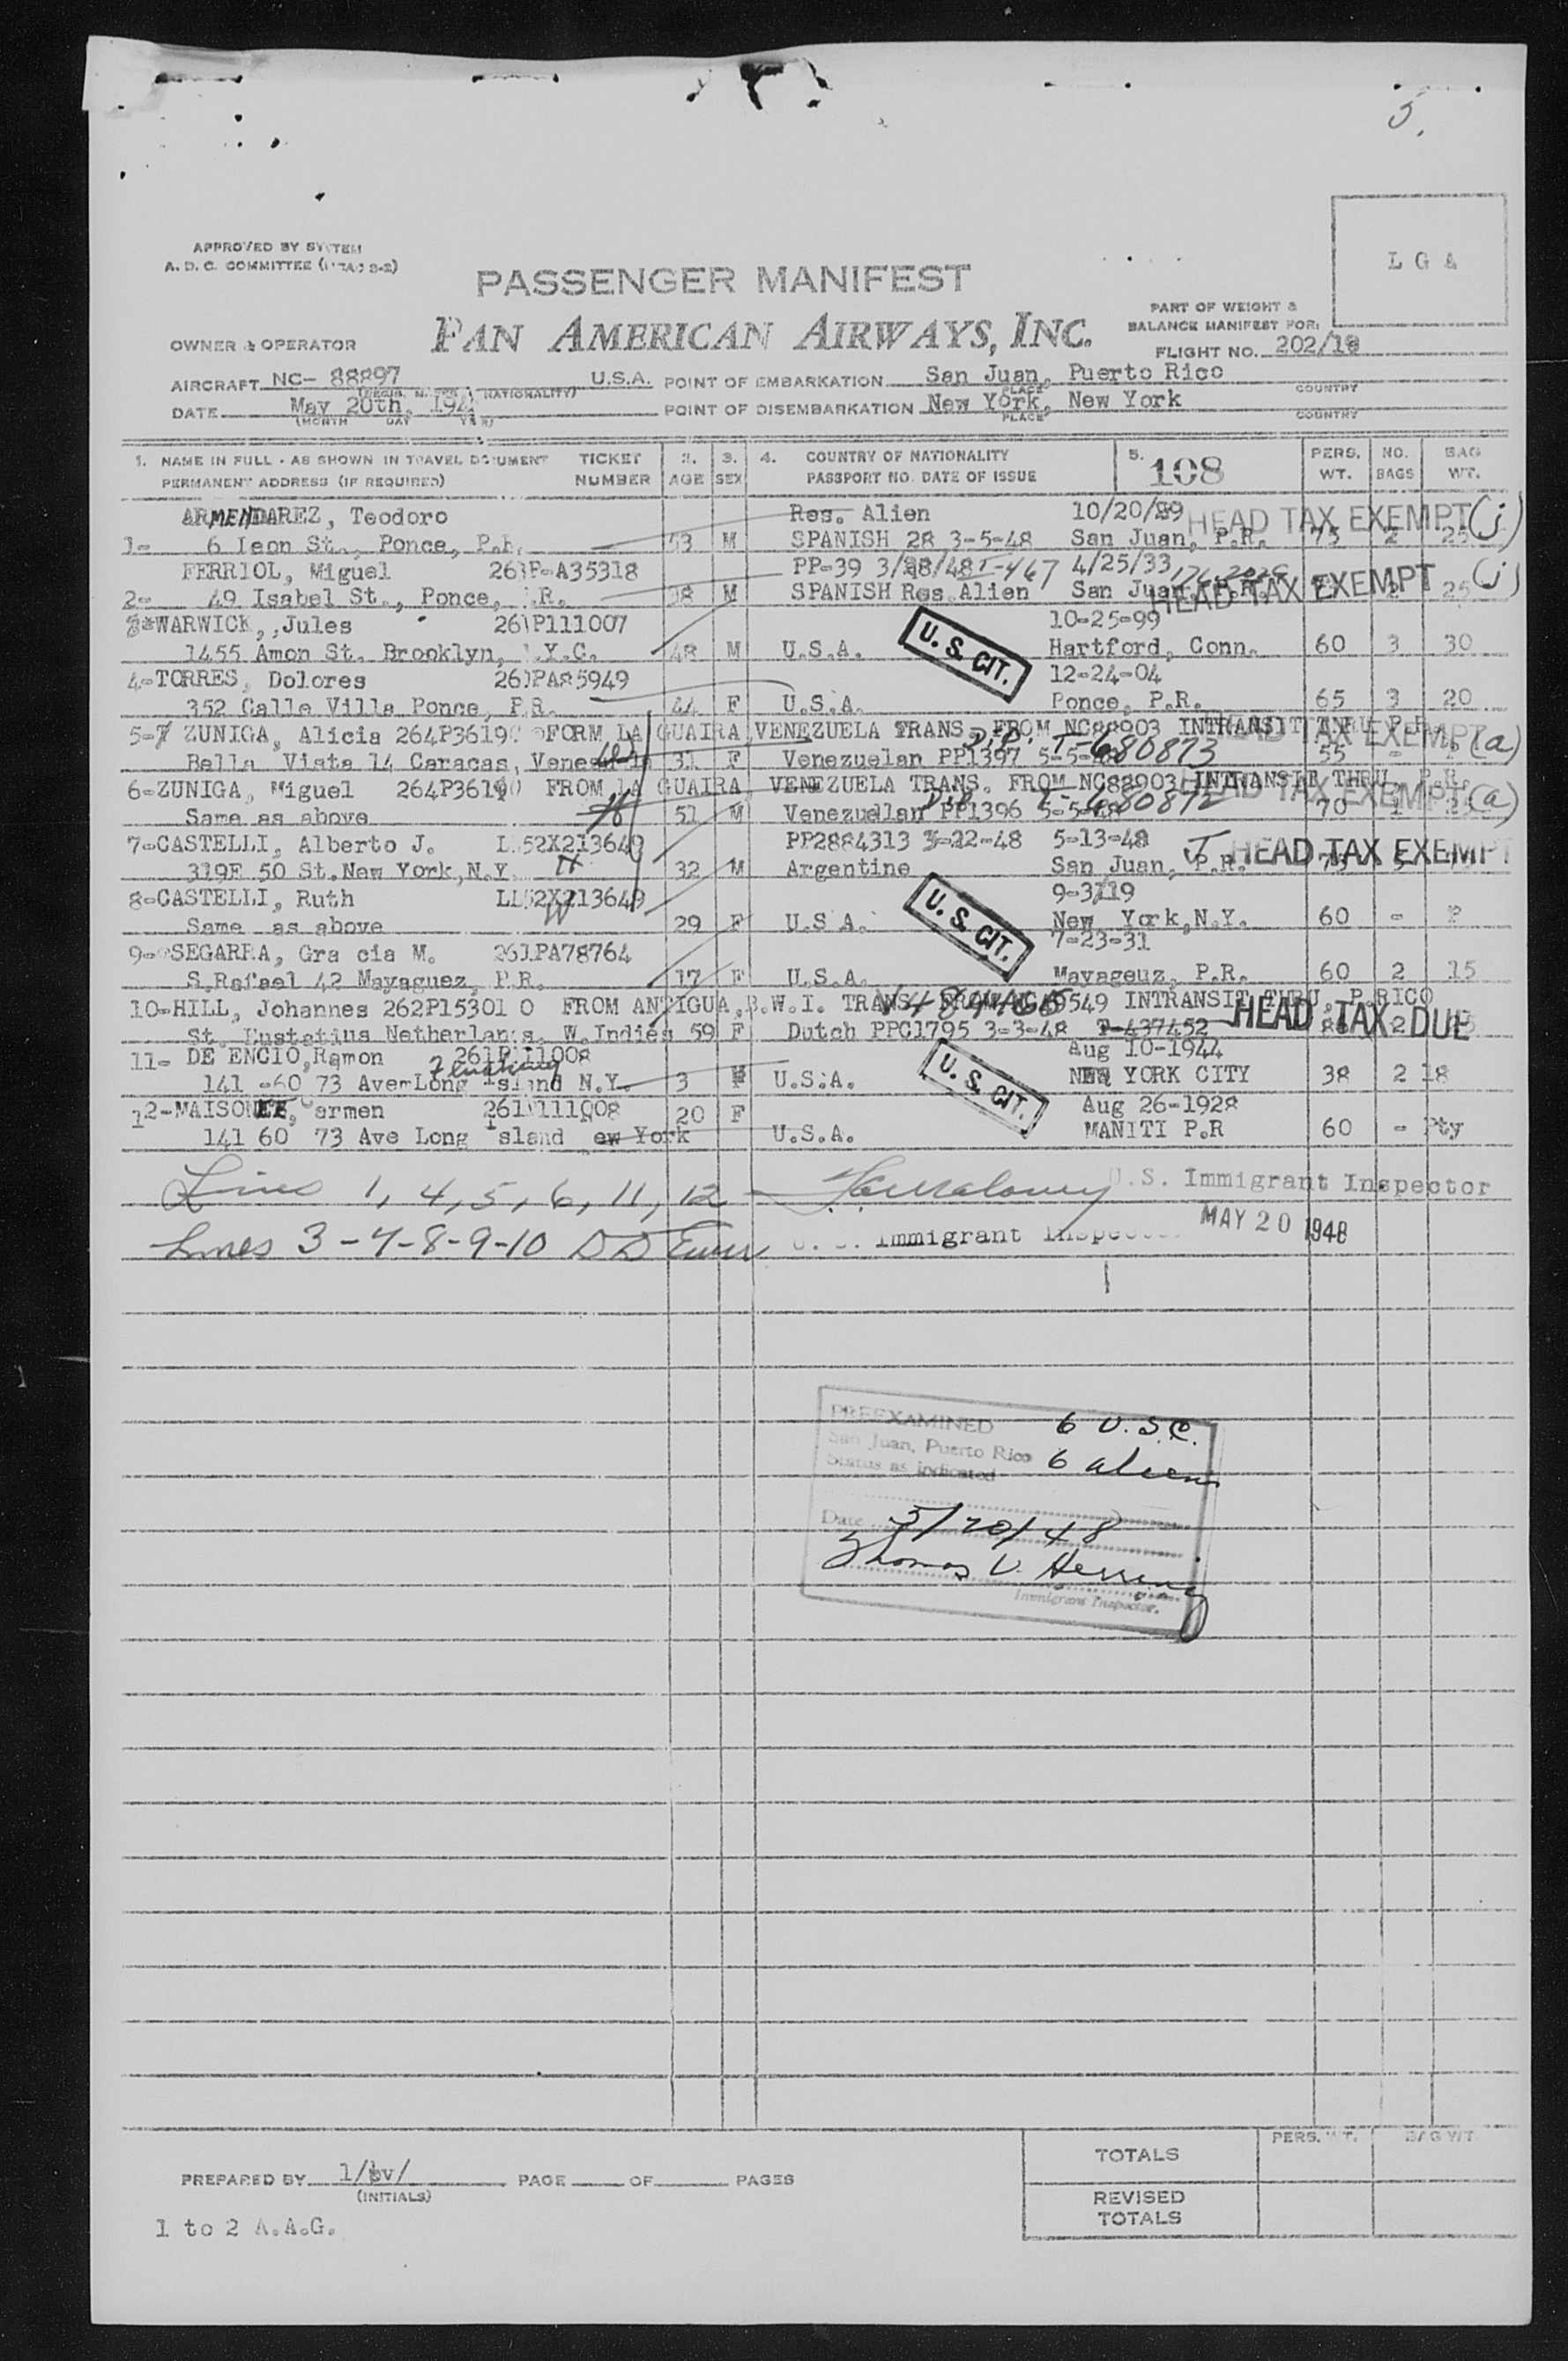 5.
APPROVED BY SYSTEM
A. D. C. COMMITTEE
LGA
PASSENGER MANIFEST
PAN AMERICAN AIRWAYS, INC.
PART OF WEIGHT &
BALANCE MANIFEST FOR:
OWNER & OPERATOR
FLIGHT NO. 202/18
AIRCRAFT NC- 88897 U.S.A. POINT OF EMBARKATION San Juan, Puerto Rico
(NATIONALITY) PLACE COUNTRY
DATE May 20th, POINT OF DISEMBARKATION New York, New York
(MONTH DAY YEAR) PLACE COUNTRY
1. NAME IN FULL - AS SHOWN IN TRAVEL DOCUMENT TICKET 2. 3. 4. COUNTRY OF NATIONALITY 5. 108 PERS. NO. BAG
PERMANENT ADDRESS (IF REQUIRED) NUMBER AGE SEX PASSPORT NO. DATE OF ISSUE WT. BAGS WT.
ARMENDAREZ, Teodoro Res. Alien 10/20/ HEAD TAX EXEMPT (j)
1- 6 Leon St., Ponce, P.R. 53 M SPANISH 28 3-5-48 San Juan, P.R. 75 2 25
FERRIOL, Miguel 261P-A35318 PP-39 4/25/33
2- 49 Isabel St., Ponce, P.R. 38 M SPANISH Res. Alien San Juan, P.R. HEAD TAX EXEMPT (j) 25
3-WARWICK,,Jules 261P111007 10-25-99
1455 Amon St. Brooklyn, N.Y.C. 48 M U.S.A. U.S. CIT. Hartford, Conn. 60 3 30
4-TORRES, Dolores 261PA85949 12-24-04
352 Calle Villa Ponce, P.R. 44 F U.S.A. Ponce, P.R. 65 3 20
5- ZUNIGA, Alicia 264P3619 FORM LA GUAIRA VENEZUELA TRANS. FROM NC88903 INTRANSIT THRU P.R. HEAD TAX EXEMPT (a)
Bella Vista 14 Caracas, Venezuela 31 F Venezuelan PP1397 5-5-48 T-680873 55 -
6-ZUNIGA, Miguel 264P3619 FROM LA GUAIRA, VENEZUELA TRANS. FROM NC88903 INTRANSIT THRU P.R. HEAD TAX EXEMPT (a)
Same as above 51 M Venezuelan PP1396 5-5-48 680872 70 1
7-CASTELLI, Alberto J. LL52X213649 PP2884313 3-22-48 5-13-48 J HEAD TAX EXEMPT
319E 50 St.New York,N.Y. 32 M Argentine San Juan, P.R. 75 5
8-CASTELLI, Ruth LL52X213649 9-3-19
Same as above 29 F U.S.A. U.S. CIT. New York,N.Y. 60 - P
9-SEGARRA, Gra cia M. 261PA78764 7-23-31
S.Rafael 42 Mayaguez, P.R. 17 F U.S.A. Mayageuz, P.R. 60 2 15
10-HILL, Johannes 262P15301 0 FROM ANTIGUA,B.W.I. TRANS. FROM INTRANSIT THRU, P.RICO
St. Eustatius Netherlands, W.Indies 59 F Dutch PPC1795 3-3-48 T-437452 HEAD TAX DUE
11- DE ENCIO,Ramon 261P111008 Aug 10-1944
141 -60 73 Ave-Long Island N.Y. Flushing 3 U.S.A. U.S. CIT. NEW YORK CITY 38 2 18
12-MAISONET, Carmen 261P111008 20 F Aug 26-1928
141 60 73 Ave Long Island ew York U.S.A. MANITI P.R 60 - Pty
Lines 1, 4, 5, 6, 11, 12 - U.S. Immigrant Inspector
MAY 20 1948
Lines 3-7-8-9-10 U. S. Immigrant Inspector
PREEXAMINED 6 U.S.C.
San Juan, Puerto Rico
Status as indicated 6 aliens
Date 5/20/48
Thomas V. Herring
Immigrant Inspector.
TOTALS PERS. WT. BAG WT
PREPARED BY 1/bv/ PAGE OF PAGES
(INITIALS)
REVISED
TOTALS
1 to 2 A.A.G.